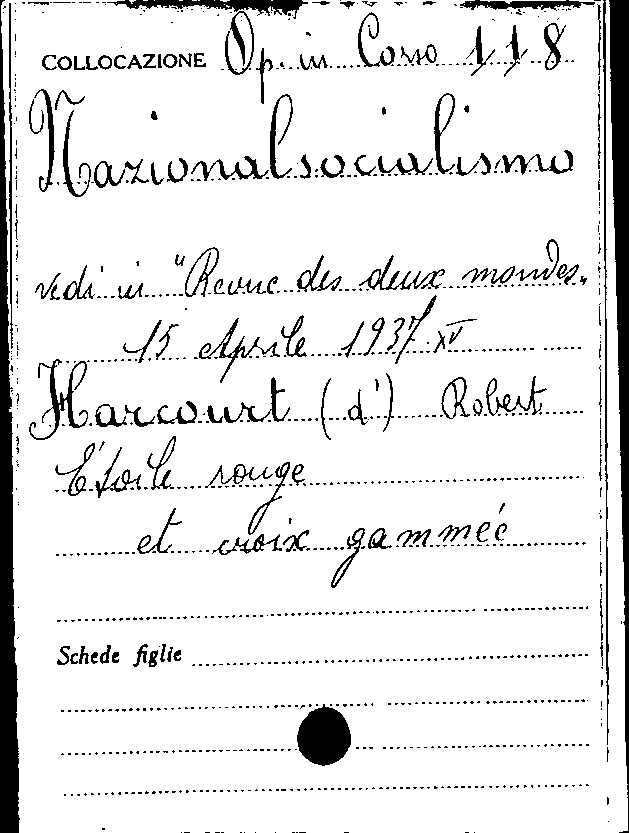 COLLOCAZIONE Op. in Corso 118
Nazionalsocialismo
vedi in "Revue des deux mondes"
15 Aprile 1937 XV
Harcourt (d') Robert
Etoile rouge
et croix gammée
Schede figlie